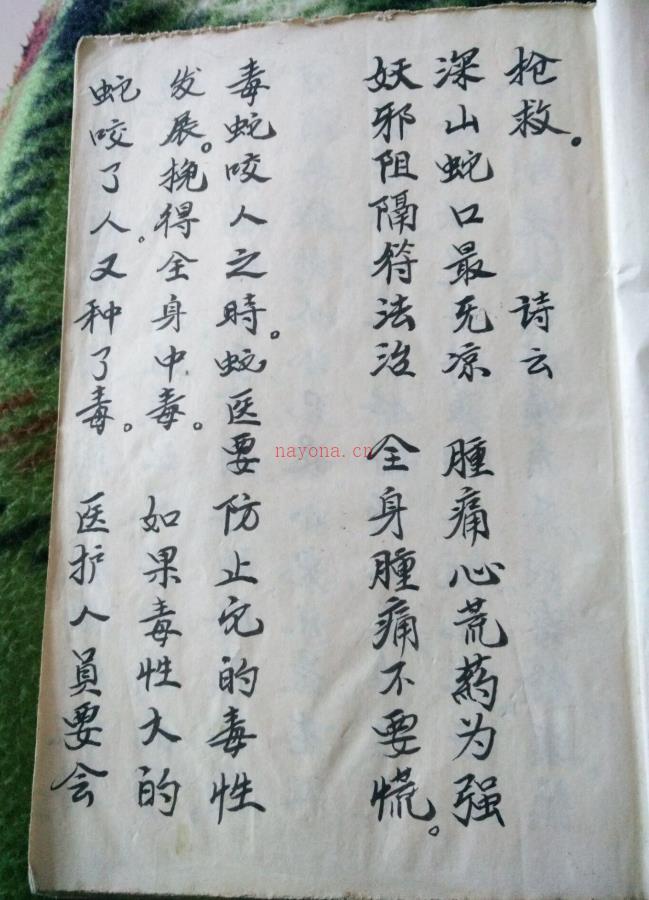 抢救。 詩云
深山蛇口最无凉 腫痛心荒药为强
妖邪阻隔符法治 全身腫痛不要慌。
毒蛇咬人之時。蛇医要防止它的毒性
发展。挽得全身中毒。 如果毒性大的
蛇咬了人。又种了毒。 医护人員要会
nayona.cn